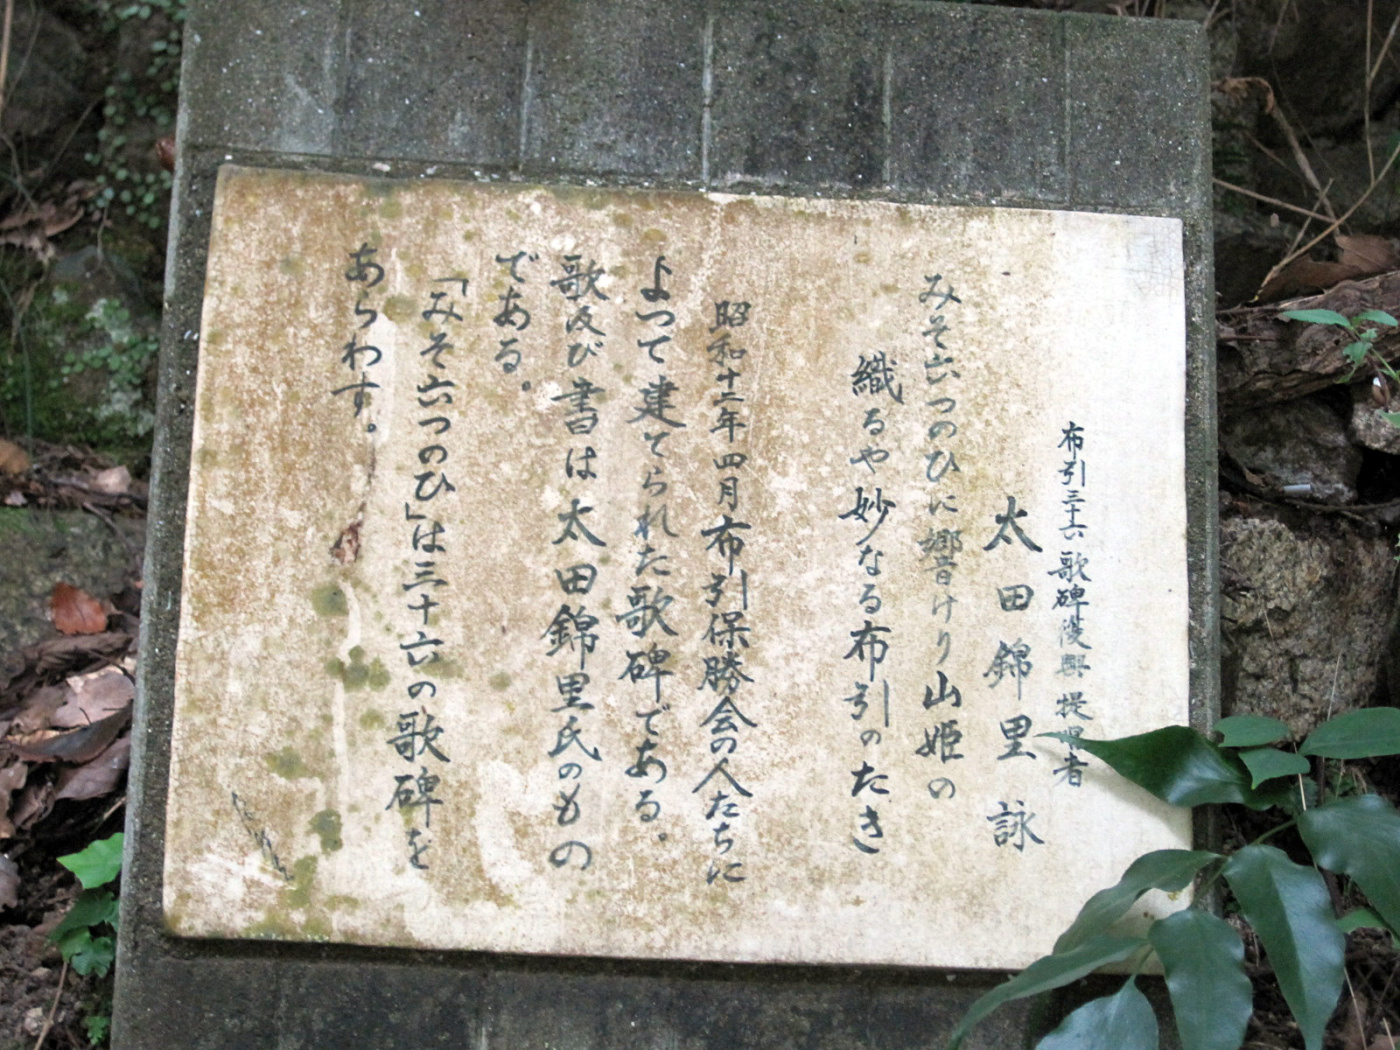 布引三十六歌碑復興提唱者
太田錦里詠
みそ六つのひに響けり山姫の
織るや妙なる布引のたき
昭和十三年四月布引保勝会の人たちに
よつて建てられた歌碑である。
歌及び書は太田錦里氏のもの
である。
「みそ六つのひ」は三十六の歌碑を
あらわす。